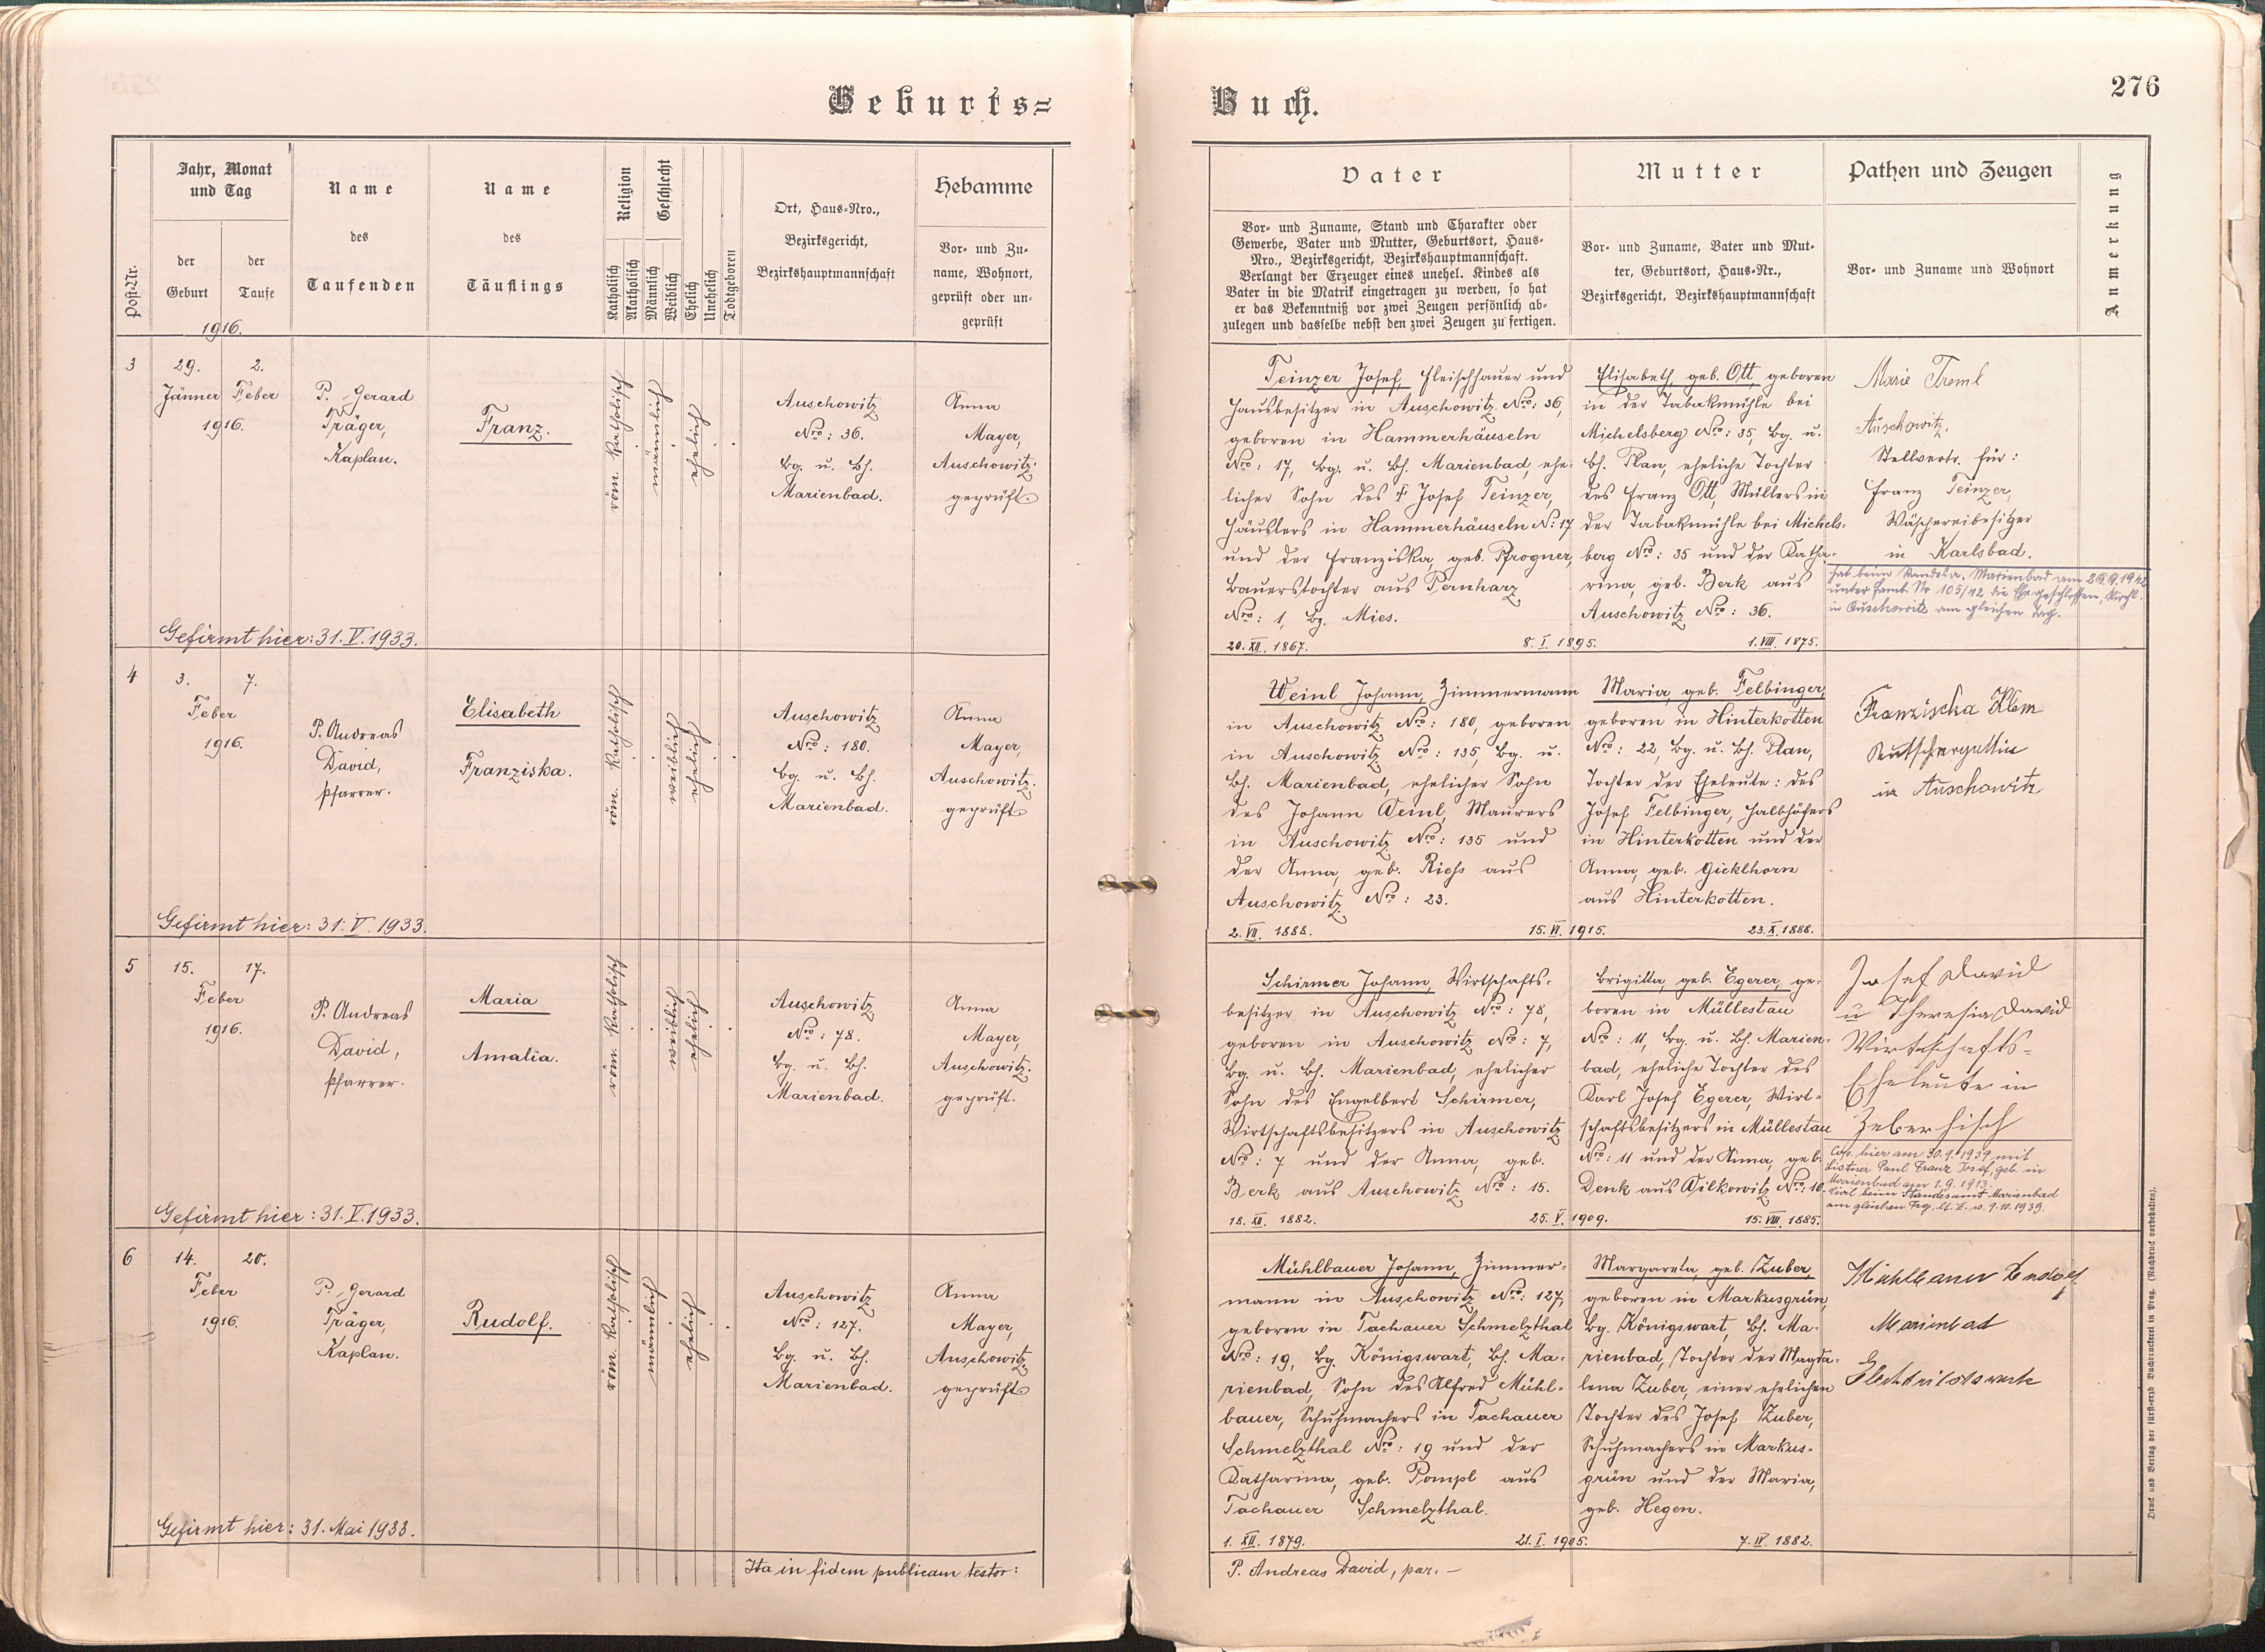 Geburts=
Buch.
276
Post-Nr.
Jahr, Monat
und Tag
der
Geburt
der
Taufe
1916.
Name
des
Taufenden
Name
des
Täuflings
Religion
Katholisch
Akatholisch
Geschlecht
Männlich
Weiblich
Ehelich
Unehelich
Todtgeboren
Ort, Haus-Nro.,
Bezirksgericht,
Bezirkshauptmannschaft
Hebamme
Vor- und Zu-
name, Wohnort,
geprüft oder un-
geprüft
Vater
Vor- und Zuname, Stand und Charakter oder
Gewerbe, Vater und Mutter, Geburtsort, Haus-
Nro., Bezirksgericht, Bezirkshauptmannschaft.
Verlangt der Erzeuger eines unehel. Kindes als
Vater in die Matrik eingetragen zu werden, so hat
er das Bekenntniß vor zwei Zeugen persönlich ab-
zulegen und dasselbe nebst den zwei Zeugen zu fertigen.
Mutter
Vor- und Zuname, Vater und Mut-
ter, Geburtsort, Haus-Nr.,
Bezirksgericht, Bezirkshauptmannschaft
Pathen und Zeugen
Vor- und Zuname und Wohnort
Anmerkung
3
29.
2.
Jänner
Feber
1916.
P. Gerard
Träger,
Kaplan.
Franz.
röm. katholisch
männlich
ehelich
Auschowitz
Nro: 36.
Bg. u. Bh.
Marienbad.
Anna
Mayer,
Auschowitz.
geprüft
Teinzer Josef, Fleischhauer und
Hausbesitzer in Auschowitz Nro: 36,
geboren in Hammerhäuseln
Nro: 17, Bg. u. Bh. Marienbad, ehe-
licher Sohn des † Josef Teinzer,
Häuslers in Hammerhäuseln N: 17
und der Franziska, geb. Pfrogner,
Bauerstochter aus Pernharz
Nro: 1, Bg. Mies.
20. XII. 1867.
8. I. 1895.
Elisabeth, geb. Ott, geboren
in der Tabakmühle bei
Michelsberg Nro: 35, Bg. u.
Bh. Plan, eheliche Tochter
des Franz Ott, Müllers in
der Tabakmühle bei Michels-
berg Nro: 35 und der Katha-
rina, geb. Berk aus
Auschowitz Nro: 36.
1. VIII. 1875.
Marie Treml
Auschowitz.
Stellvertr. für:
Franz Teinzer,
Wäschereibesitzer
in Karlsbad.
hat beim Standesa. Marienbad am 26.9.1942
unter Famb. Nr 105/42 die Ehe geschlossen, kirchl.
in Auschowitz am gleichen Tag.
Gefirmt hier: 31. V. 1933.
4
3.
7.
Feber
1916.
P. Andreas
David,
Pfarrer.
Elisabeth
Franziska.
röm. katholisch
weiblich
ehelich
Auschowitz
Nro: 180.
Bg. u. Bh.
Marienbad.
Anna
Mayer,
Auschowitz.
geprüft
Weinl Johann, Zimmermann
in Auschowitz Nro: 180, geboren
in Auschowitz Nro: 135, Bg. u.
Bh. Marienbad, ehelicher Sohn
des Johann Weinl, Maurers
in Auschowitz Nro: 135 und
der Anna, geb. Riess aus
Auschowitz Nro: 23.
2. VII. 1888.
15. VI. 1915.
Maria, geb. Felbinger,
geboren in Hinterkotten
Nro: 22, Bg. u. Bh. Plan,
Tochter der Eheleute: des
Josef Felbinger, Halbhöfers
in Hinterkotten und der
Anna, geb. Gicklhorn
aus Hinterkotten.
23. X. 1888.
Franziska Klem
in Auschowitz
Gefirmt hier: 31. V. 1933.
5
15.
17.
Feber
1916.
P. Andreas
David,
Pfarrer.
Maria
Amalia.
röm. katholisch
weiblich
ehelich
Auschowitz
Nro: 78.
Bg. u. Bh.
Marienbad.
Anna
Mayer,
Auschowitz.
geprüft.
Schirmer Johann, Wirtschafts-
besitzer in Auschowitz Nro: 78,
geboren in Auschowitz Nro: 7,
Bg. u. Bh. Marienbad, ehelicher
Sohn des Engelbert Schirmer,
Wirtschaftsbesitzers in Auschowitz
Nro: 7 und der Anna, geb.
Berk aus Auschowitz Nro: 15.
18. XII. 1882.
25. V. 1909.
Brigitta, geb. Egerer, ge-
boren in Müllestau
Nro: 11, Bg. u. Bh. Marien-
bad, eheliche Tochter des
Karl Josef Egerer, Wirt-
schaftsbesitzers in Müllestau
Nro: 11 und der Anna, geb.
Denk aus Wilkowitz Nro: 10.
15. VIII. 1885.
Josef David
u Theresia David
Wirtschafts-
Eheleute in
Zeberhisch
Cop. hier am 30.9.1939 mit
Listner Paul Franz Josef, geb. in
Marienbad am 1.9.1913.
Civil beim Standesamt Marienbad
am gleichen Tag, lt. Z. v. 9.10.1939.
Gefirmt hier: 31. V. 1933.
6
14.
20.
Feber
1916.
P. Gerard
Träger,
Kaplan.
Rudolf.
röm. katholisch
männlich
ehelich
Auschowitz
Nro: 127.
Bg. u. Bh.
Marienbad.
Anna
Mayer,
Auschowitz,
geprüft
Mühlbauer Johann, Zimmer-
mann in Auschowitz Nro: 127,
geboren in Tachauer Schmelzthal
Nro: 19, Bg. Königswart, Bh. Ma-
rienbad, Sohn des Alfred Mühl-
bauer, Schuhmachers in Tachauer
Schmelzthal Nro: 19 und der
Katharina, geb. Pompl aus
Tachauer Schmelzthal.
1. XII. 1879.
21. I. 1905.
Margareta, geb. Zuber,
geboren in Markusgrün,
Bg. Königswart, Bh. Ma-
rienbad, Tochter der Magda-
lena Zuber, einer ehelichen
Tochter des Josef Zuber,
Schuhmachers in Markus-
grün und der Maria,
geb. Hegen.
7. IV. 1882.
Mühlbauer Rudolf
Marienbad
Gefirmt hier: 31. Mai 1933.
Ita in fidem publicam testor:
P. Andreas David, par. —
Druck und Verlag der fürst-erzb Buchdruckerei in Prag. (Nachdruck vorbehalten).